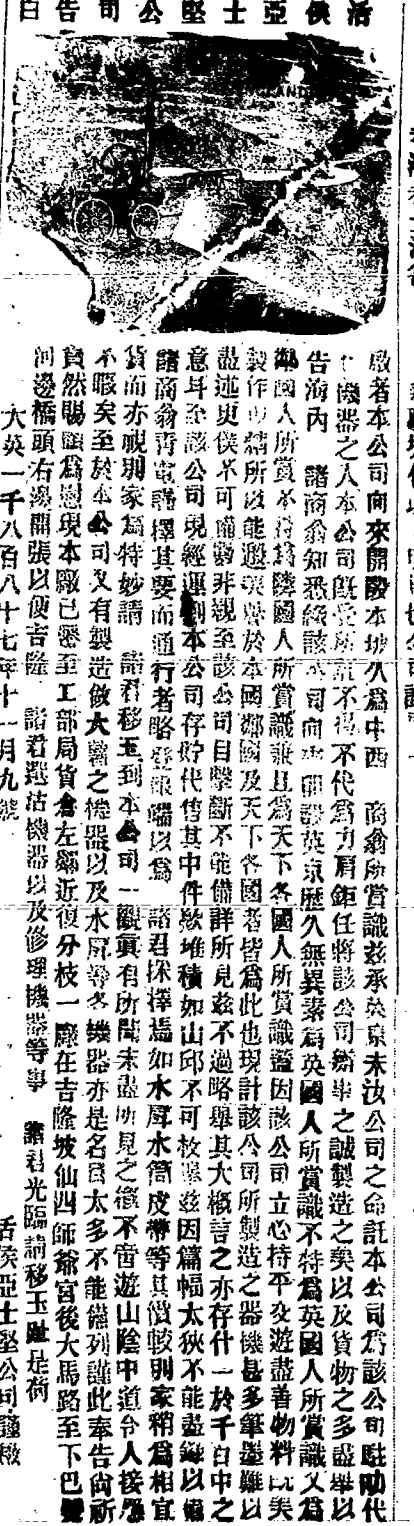 活侯亞士堅公司告白
啟者本公司向來開設本坡久爲中西　商翁所賞識茲承英京末汝公司之命託本公司爲該公司駐助代
機器之人本公司旣受所託不得不代爲力肩鉅任將該公司辦事之誠製造之美以及貨物之多盡舉以
告海內　諸商翁知悉緣該公司向來開設英京歷久無異素爲英國人所賞識不特爲英國人所賞識又爲
鄰國人所賞識不特爲隣國人所賞識兼且爲天下各國人所賞識蓋因該公司立心持平交遊盡善物料旣美
製作亦精所以能邀美譽於本國鄰國及天下各國者皆爲此也現計該公司所製造之器機甚多筆墨難以
盡述更僕不可備數非親至該公司目擊斷不能備詳所見茲不過略舉其大概言之亦存什一於千百中之
意耳至該公司現經運到本公司存貯代售其中件欵堆積如山邱不可枚舉茲因篇幅太狹不能盡錄以
諸商翁靑電請擇其要而通行者略登報端以爲　諸君採擇焉如水屛水筒皮帶等其價較別家稍爲相宜
貨而亦視別家爲特妙請　諸君移玉到本公司一觀眞有所聞未盡所見之徵不啻遊山陰中道令人接應
不暇矣至於本公司又有製造做大醬之機器以及水屛等各機器亦是名目太多不能備列謹此奉告尙祈
賁然賜顧爲慰現本廠已遷至工部局貨倉左鄰近復分枝一廠在吉隆坡仙四師爺宮後大馬路至下巴
河邊橋頭右邊開張以便吉隆　諸君選沽機器以及修理機器等事　諸君光臨請移玉趾是荷
大英一千八百八十七年十一月九號　活侯亞士堅公司謹啟